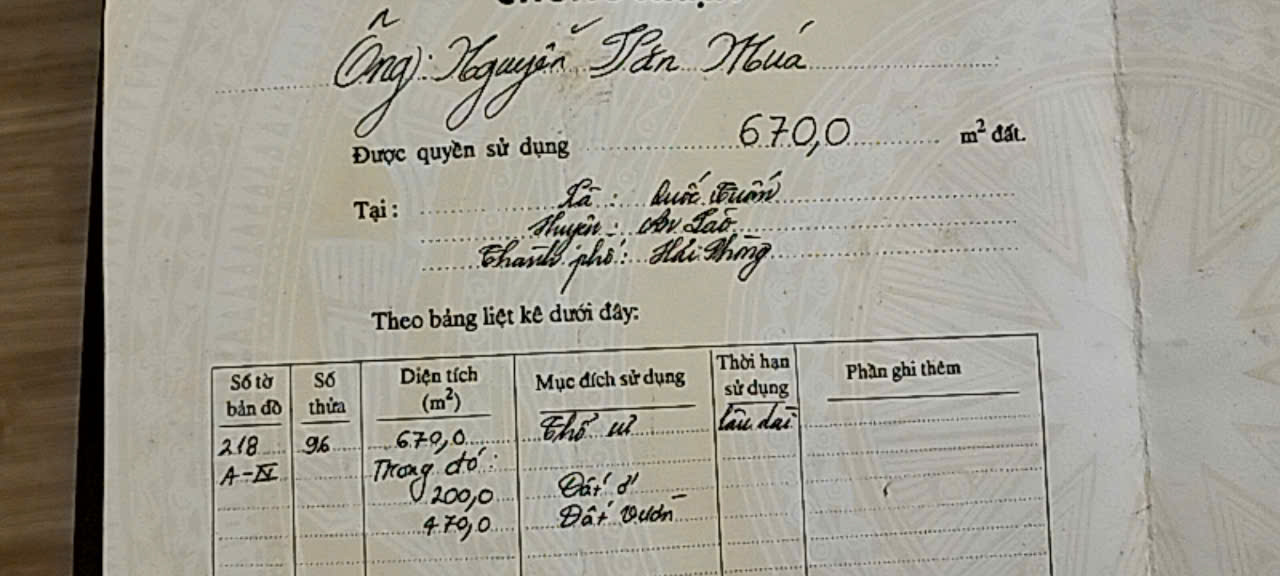 Ông: Nguyễn Tấn Muá
Được quyền sử dụng 670,0 m² đất.
Tại: Xã: Quốc Tuấn
Huyện: An Lão
Thành phố: Hải Phòng
Theo bảng liệt kê dưới đây:
Số tờ bản đồ Số thửa Diện tích (m²) Mục đích sử dụng Thời hạn sử dụng Phần ghi thêm
218 96 670,0 Thổ cư lâu dài
A-IV Trong đó:
200,0 Đất ở
470,0 Đất vườn